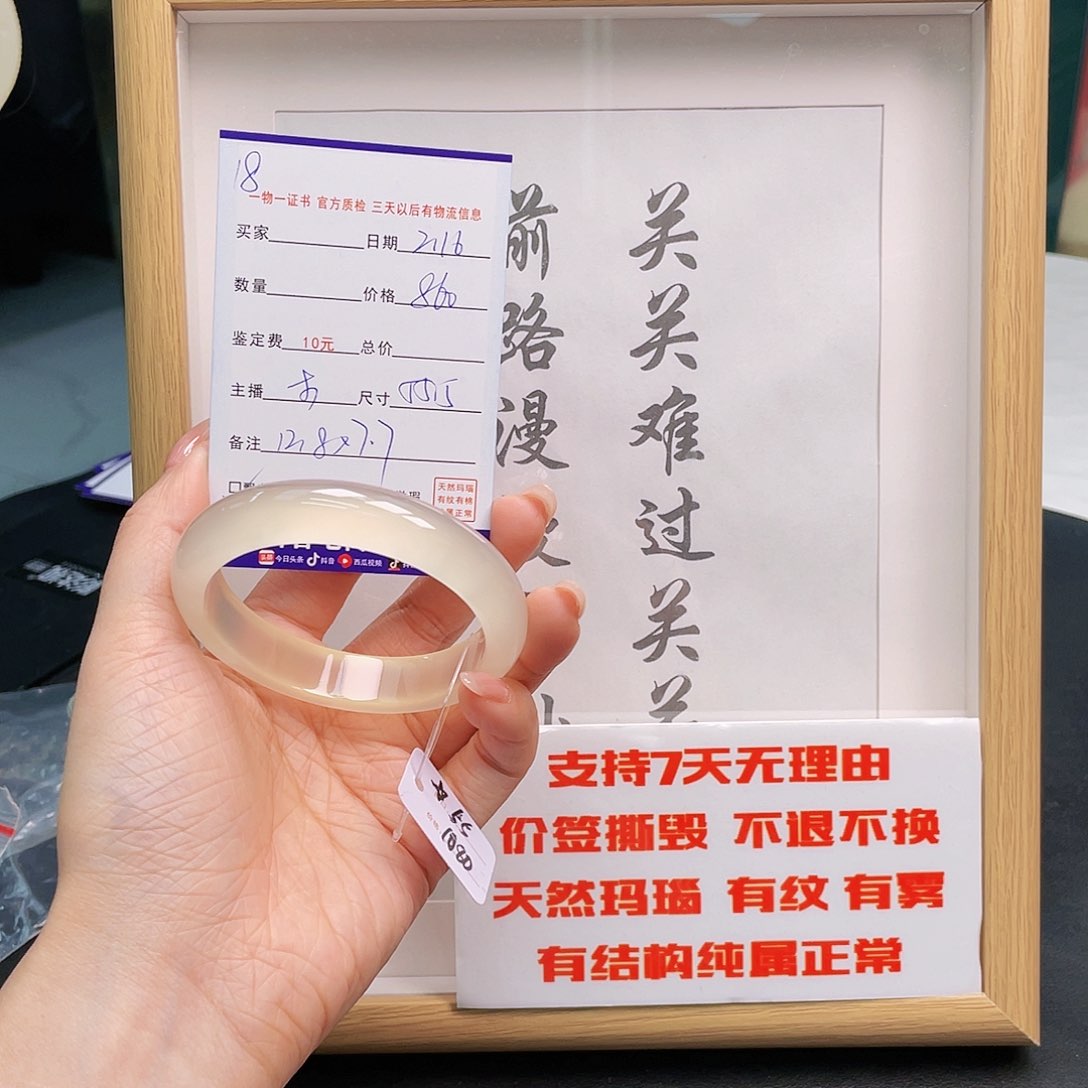 18
一物一证书 官方质检 三天以后有物流信息
买家 日期 2.16
数量 价格 860
鉴定费 10元 总价
主播 尺寸
备注 12.8x7.7
天然玛瑙
有纹有棉
属正常
今日头条 抖音 西瓜视频
关关难过关关
前路漫
支持7天无理由
价签撕毁 不退不换
天然玛瑙 有纹 有雾
有结构纯属正常